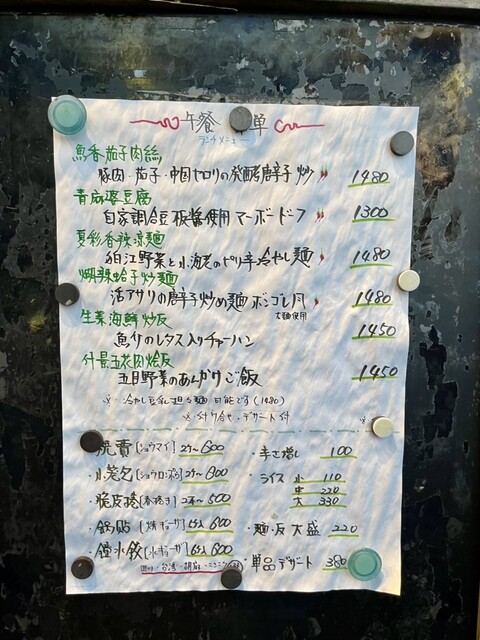 午餐 単
ランチメニュー
魚香茄子肉絲
豚肉・茄子・中国セロリの発酵唐辛子炒 1480
青麻婆豆腐
自家調合豆板醤使用マーボードーフ 1300
夏彩香辣涼麺
狛江野菜と小海老のピリ辛冷やし麺 1480
煳辣蛤子炒麺
活アサリの唐辛子炒め麺ボンゴレ風 1480
太麺使用
生菜海鮮炒飯 1450
魚介のレタス入りチャーハン
什景五花肉烩飯 1450
五目野菜のあんかけご飯
※・冷やし豆乳担々麺可能です(1480)
※・付け合せ・デザート付
焼売[ショウマイ] 2ケ〜600
・小笼包[ショウロンポウ] 2ケ〜600
・脆皮捲[春捲き] 2本〜500
・鍋貼[焼ギョーザ] 600
・鐘水餃[水ギョーザ] 600
・辛さ増し 100
・ライス 小 110
中 220
大 330
・麺・反大盛 220
・単品デザート 380